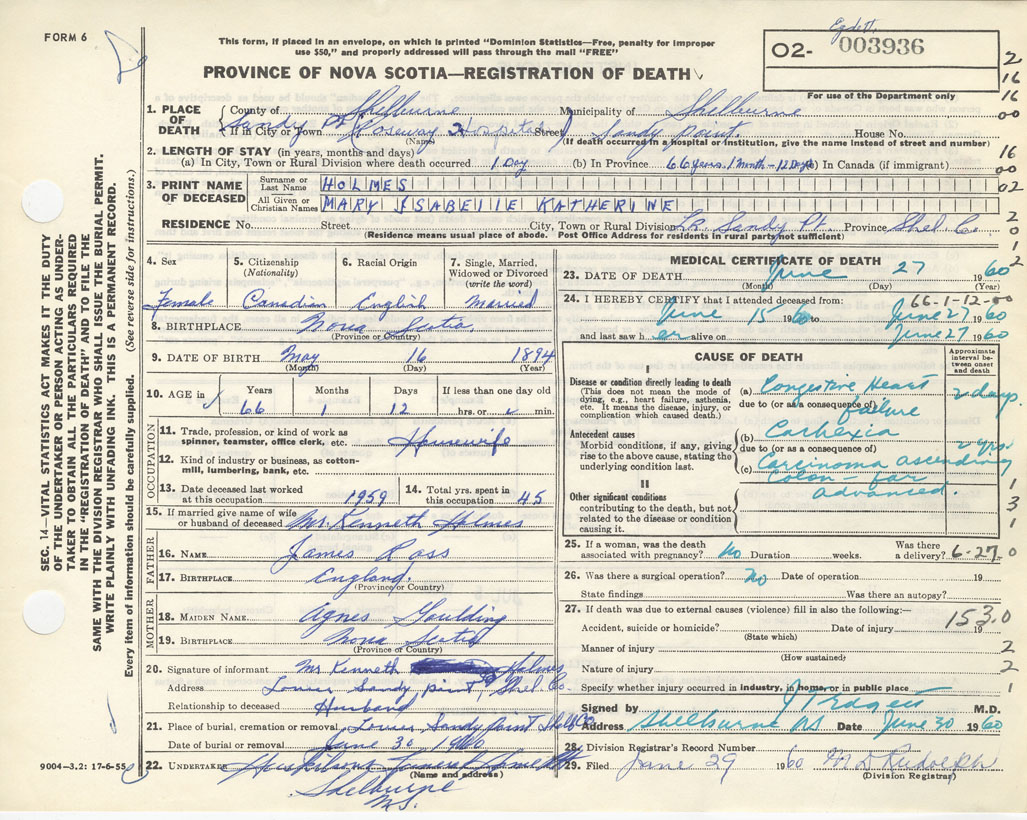 FORM 6
This form, if placed in an envelope, on which is printed "Dominion Statistics—Free, penalty for improper
use $50," and properly addressed will pass through the mail "FREE"
PROVINCE OF NOVA SCOTIA—REGISTRATION OF DEATH
02- 003936
For use of the Department only
2
16
16
00
1. PLACE OF DEATH
County of Shelburne Municipality of Shelburne
Sandy Pt.
If in City or Town Roseway Hospital Street Sandy Point House No.
(Name) (If death occurred in a hospital or institution, give the name instead of street and number)
2. LENGTH OF STAY (in years, months and days)
(a) In City, Town or Rural Division where death occurred 1 Day (b) In Province 66 years. 1 Month - 12 Days (c) In Canada (if immigrant)
16
00
3. PRINT NAME OF DECEASED
Surname or Last Name HOLMES
02
All Given or Christian Names MARY ISABELLE KATHERINE
RESIDENCE No. Street City, Town or Rural Division Lr. Sandy Pt. Province Shel. Co.
(Residence means usual place of abode. Post Office Address for residents in rural parts not sufficient)
2
0
1
2
SEC. 14—VITAL STATISTICS ACT MAKES IT THE DUTY
OF THE UNDERTAKER OR PERSON ACTING AS UNDER-
TAKER TO OBTAIN ALL THE PARTICULARS REQUIRED
IN THE "REGISTRATION OF DEATH" AND TO FILE THE
SAME WITH THE DIVISION REGISTRAR WHO SHALL ISSUE THE BURIAL PERMIT.
WRITE PLAINLY WITH UNFADING INK. THIS IS A PERMANENT RECORD.
Every item of information should be carefully supplied. (See reverse side for instructions.)
4. Sex Female
5. Citizenship (Nationality) Canadian
6. Racial Origin English
7. Single, Married, Widowed or Divorced (write the word) Married
8. BIRTHPLACE Nova Scotia
(Province or Country)
9. DATE OF BIRTH May 16 1894
(Month) (Day) (Year)
10. AGE in Years 66 Months 1 Days 12 If less than one day old hrs. or min.
OCCUPATION
11. Trade, profession, or kind of work as
spinner, teamster, office clerk, etc. Housewife
12. Kind of industry or business, as cotton-
mill, lumbering, bank, etc.
13. Date deceased last worked at this occupation 1959
14. Total yrs. spent in this occupation 45
15. If married give name of wife
or husband of deceased Mr. Kenneth Holmes
FATHER
16. NAME James Ross
17. BIRTHPLACE England.
(Province or Country)
MOTHER
18. MAIDEN NAME Agnes Goulding
19. BIRTHPLACE Nova Scotia
(Province or Country)
20. Signature of informant Mr Kenneth Holmes
Address Lower Sandy point, Shel. Co.
Relationship to deceased Husband
21. Place of burial, cremation or removal Lower Sandy Point Shel Co
Date of burial or removal June 30 1960
22. UNDERTAKER Funeral Home
(Name and address)
Shelburne
N.S.
9004-3.2: 17-6-55
MEDICAL CERTIFICATE OF DEATH
23. DATE OF DEATH June 27 1960
(Month) (Day)
66-1-12-00
24. I HEREBY CERTIFY that I attended deceased from:
June 15 1960 to June 27 1960
and last saw her alive on June 27 1960
CAUSE OF DEATH
Approximate interval between onset and death
I
Disease or condition directly leading to death
(This does not mean the mode of
dying, e.g., heart failure, asthenia,
etc. It means the disease, injury, or
complication which caused death.)
(a) Congestive Heart 2 days.
due to (or as a consequence of) failure
Antecedent causes
Morbid conditions, if any, giving
rise to the above cause, stating the
underlying condition last.
(b) Cachexia
due to (or as a consequence of)
(c) Carcinoma ascending
Colon - far
advanced
II
Other significant conditions
contributing to the death, but not
related to the disease or condition
causing it.
1
3
1
25. If a woman, was the death
associated with pregnancy? No Duration weeks. Was there a delivery? 6-27 0
26. Was there a surgical operation? No Date of operation 19
State findings Was there an autopsy?
27. If death was due to external causes (violence) fill in also the following:—
153.0
Accident, suicide or homicide? Date of injury 19
(State which)
Manner of injury 2
(How sustained)
Nature of injury 2
Specify whether injury occurred in industry, in home, or in public place 1
Signed by M.D.
Address Shelburne NS Date June 30 1960
28. Division Registrar's Record Number
29. Filed June 29 1960 M D Rudolph
(Division Registrar)